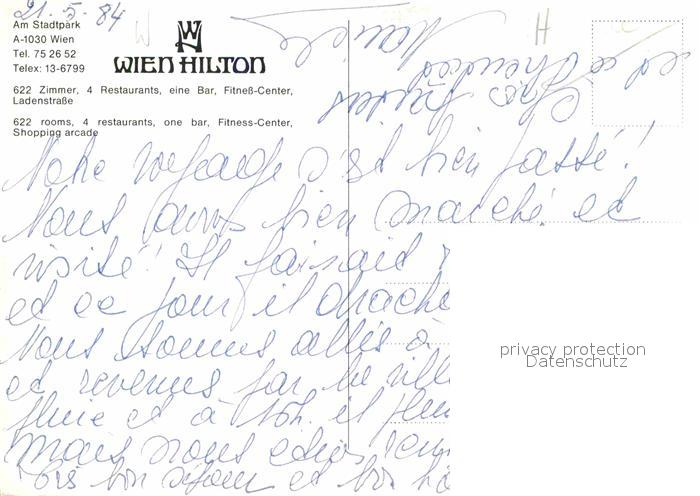 21-5-84
Am Stadtpark
A-1030 Wien
Tel. 75 26 52
Telex: 13-6799
WIEN HILTON
622 Zimmer, 4 Restaurants, eine Bar, Fitneß-Center,
Ladenstraße
622 rooms, 4 restaurants, one bar, Fitness-Center,
Shopping arcade
W
H
Notre voyage s'est bien passé!
Nous avons bien marché et
visité! Il faisait
et ce jour il drache
Nous sommes allés à
et revenus par la ville
pluie et à 16h. il pleu
mais nous
Très bon séjour et bon hô
privacy protection
Datenschutz